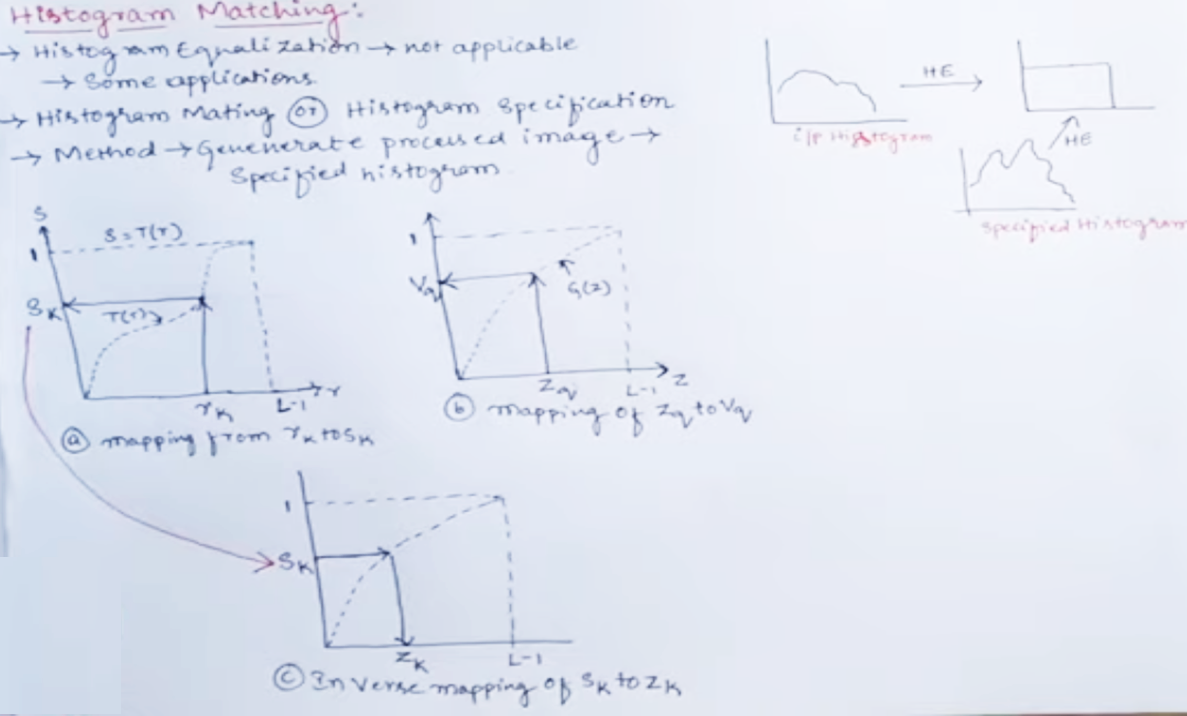 Histogram Matching:
→ Histogram Equalization → not applicable
→ Some applications
→ Histogram Mating (or) Histogram Specification
→ Method → Genenerate processed image →
Specified histogram.
HE
i/p Histogram
HE
Specified Histogram
S
S=T(r)
1
SK
T(r)
rK
L-1
r
(a) mapping from rK to SK
1
Vq
G(z)
Zq
L-1
Z
(b) mapping of Zq to Vq
1
SK
ZK
L-1
(c) Inverse mapping of SK to ZK